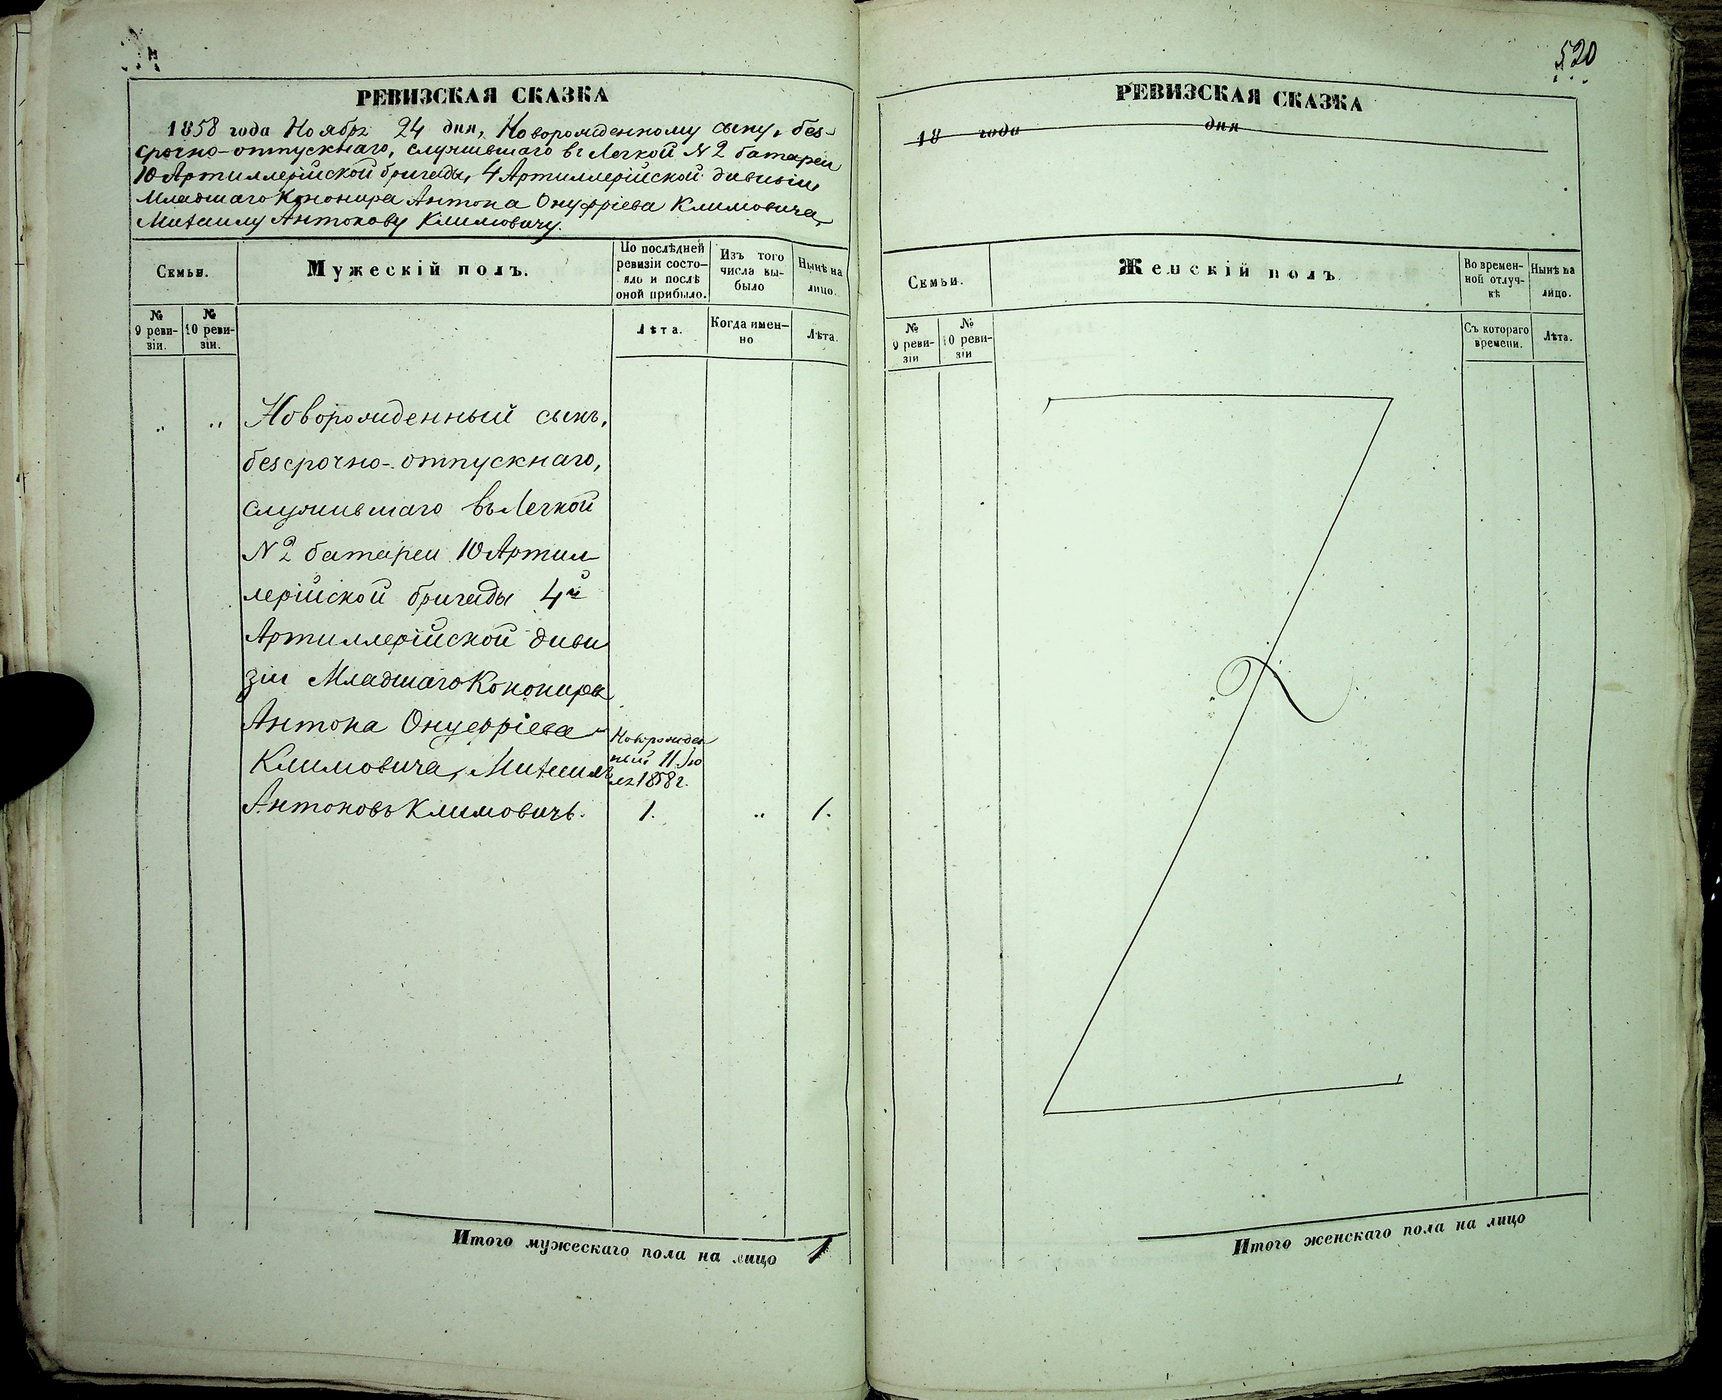 РЕВИЗСКАЯ СКАЗКА
1858 года Ноября 24 дня, Новорожденному сыну, без-
срочно-отпускнаго, служившаго въ Легкой №2 батареи
10 Артиллерійской бригады, 4 Артиллерійской дивизіи
Младшаго Канонира Антона Онуфріева Климовича,
Михаилу Антонову Климовичу.
Семьи.
Мужескій полъ.
По послѣдней
ревизіи состо-
яло и послѣ
оной прибыло.
Изъ того
числа вы-
было
Нынѣ на
лицо.
№
9 реви-
зіи.
№
10 реви-
зіи.
Лѣта.
Когда имен-
но
Лѣта.
„ „ Новорожденный сынъ,
безсрочно-отпускнаго,
служившаго въ Легкой
№2 батареи 10 Артил
лерійской бригады 4й
Артиллерійской диви
зіи Младшаго Канонира
Антона Онуфріева
Климовича, Михаилъ
Антоновъ Климовичъ.
Новорожден
ный 11 Iю
ля 1858 г.
1. „ 1.
Итого мужескаго пола на лицо 1
520
РЕВИЗСКАЯ СКАЗКА
18 года дня
Семьи.
Женскій полъ.
Во времен-
ной отлуч-
кѣ
Нынѣ на
лицо.
№
9 реви-
зіи
№
10 реви-
зіи
Съ котораго
времени.
Лѣта.
Итого женскаго пола на лицо